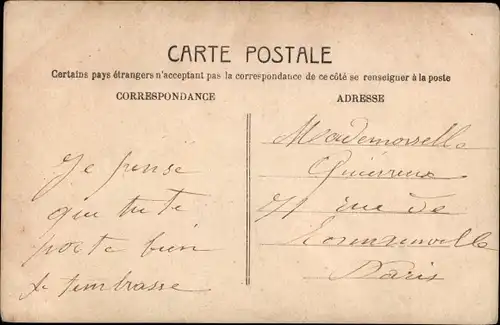 CARTE POSTALE
Certains pays étrangers n'acceptant pas la correspondance de ce côté se renseigner à la poste
CORRESPONDANCE
ADRESSE
Je pense
que tu te
porte bien
je tembrasse
Mademoiselle
71 rue de
Paris